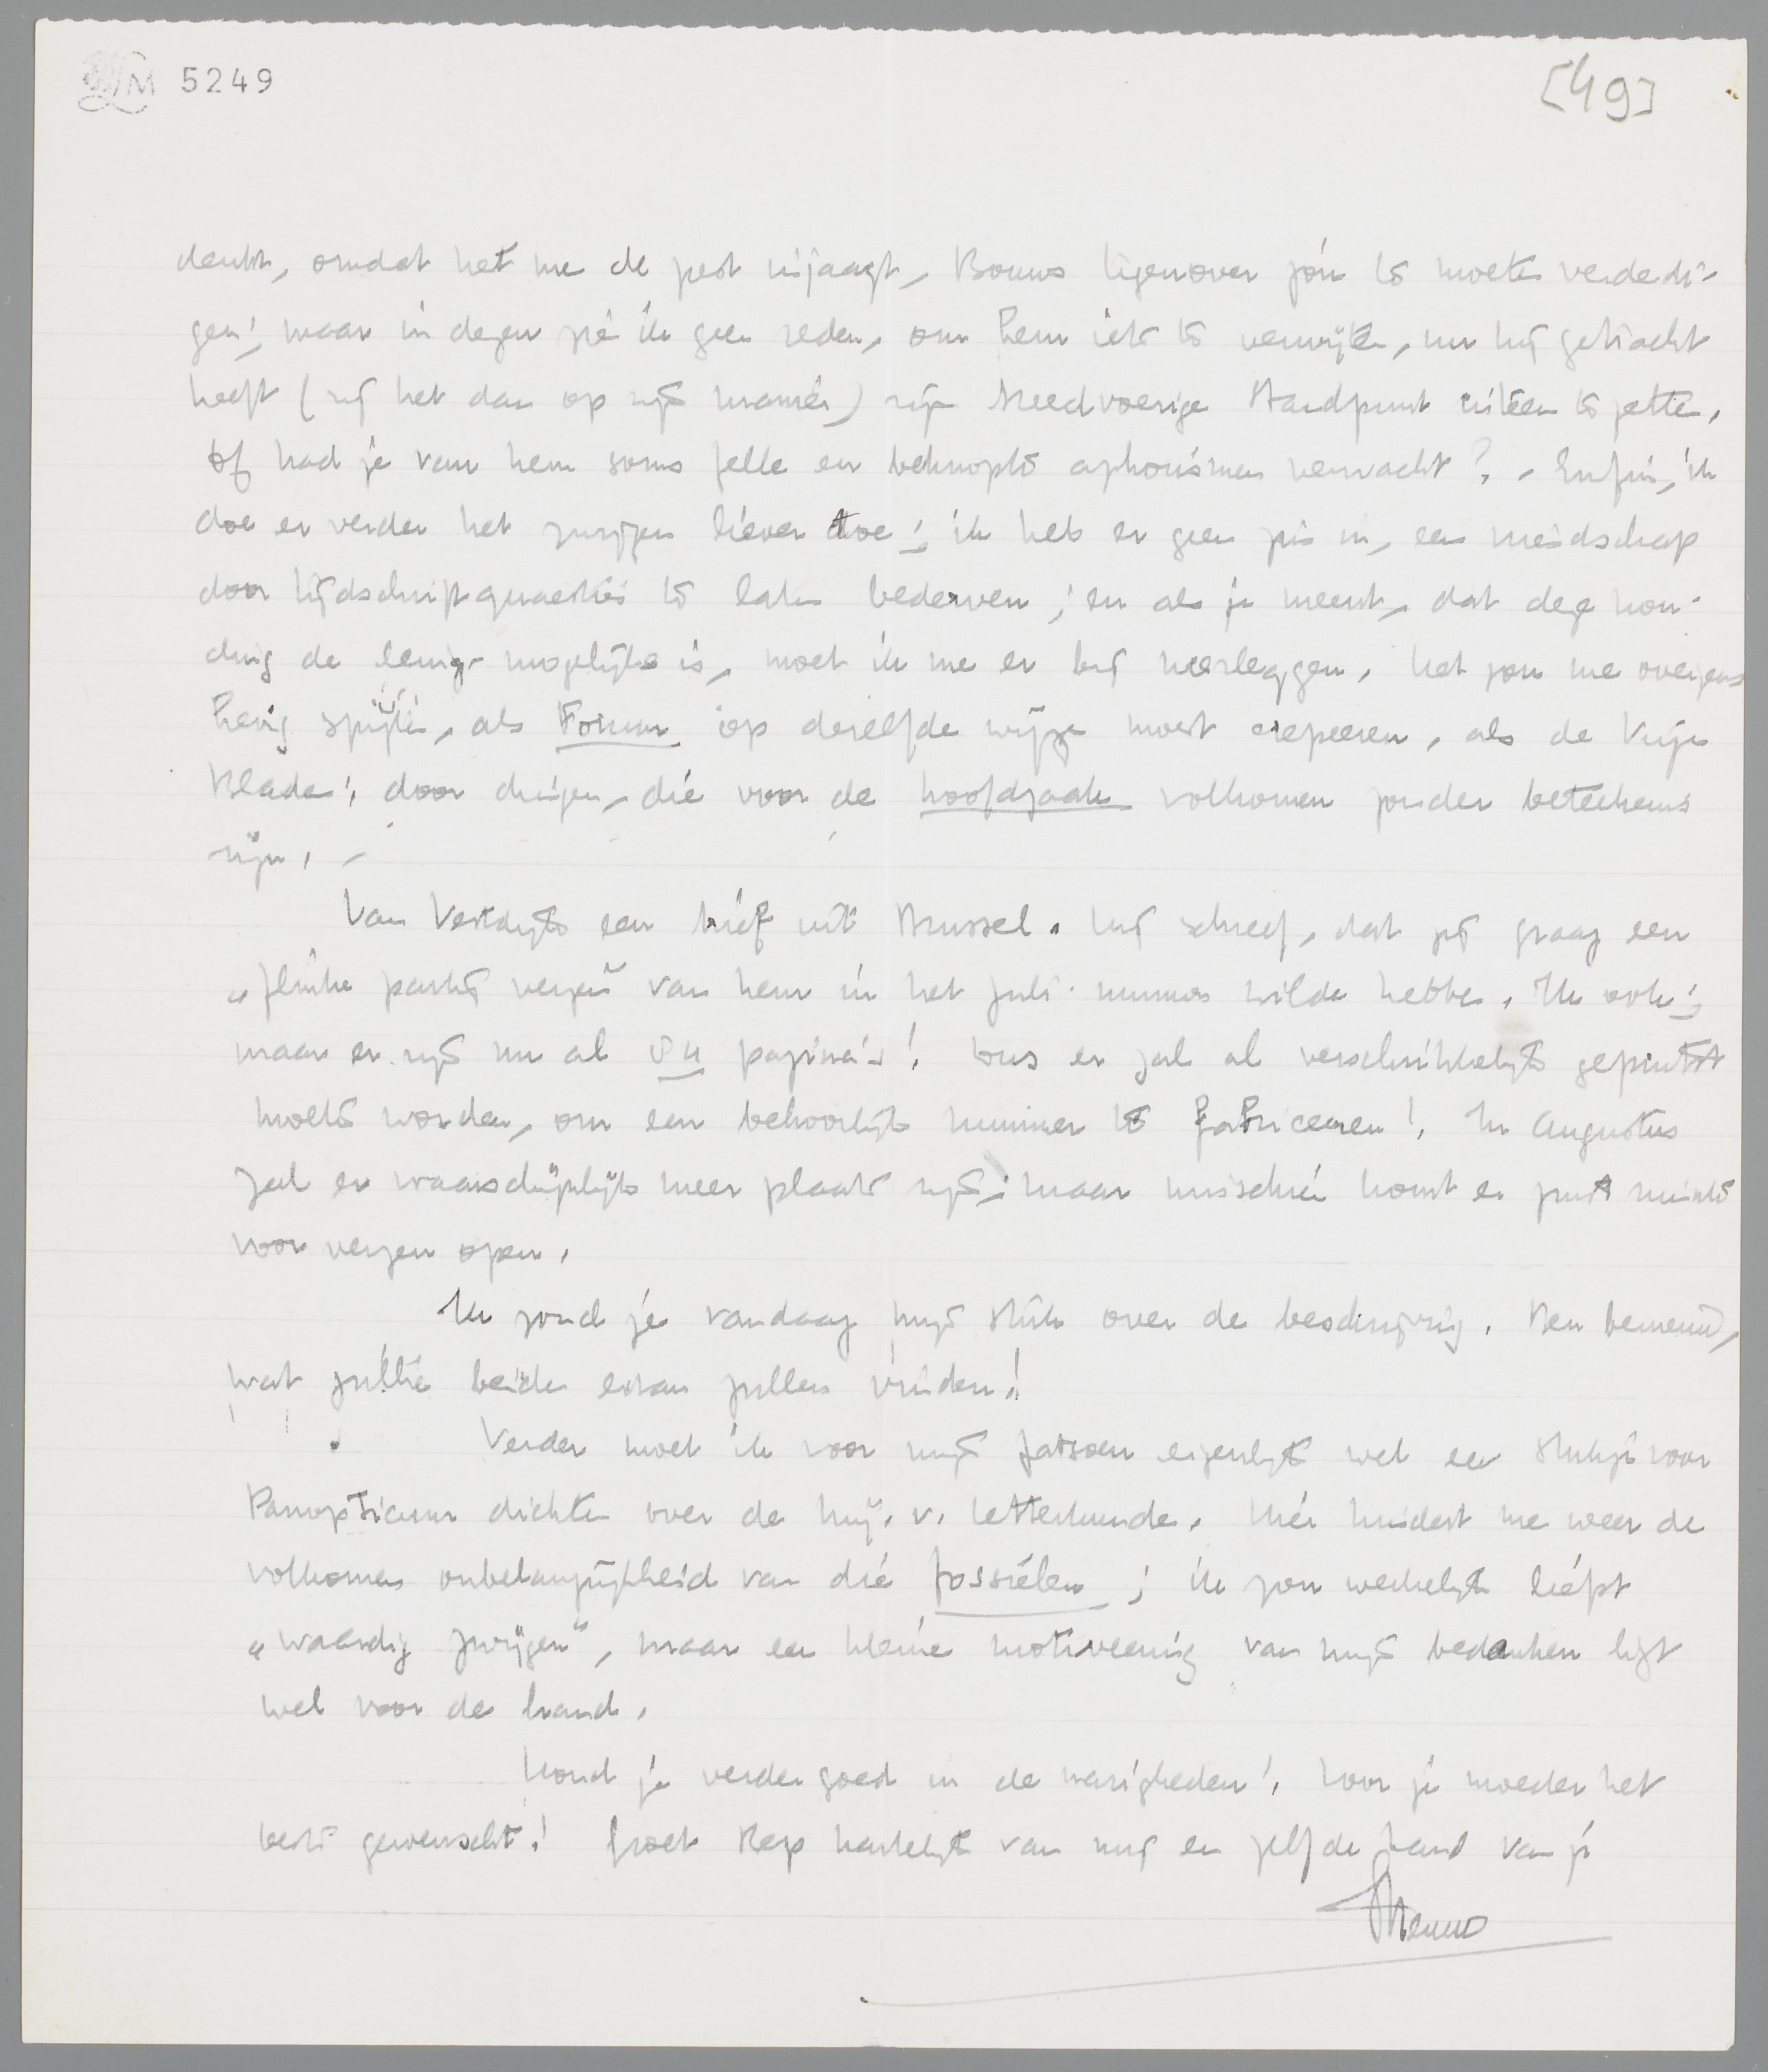 LM 5249
[49]
denkt, omdat het me de pest injaagt, Bouws tegenover jóu te moeten verdedi-
gen!, maar in dezen zie ik geen reden, om hem iets te verwijten, nu hij getracht
heeft (zij het dan op zijn manier) zijn breedvoerige standpunt uiteen te zetten.
Of had je van hem soms felle en beknopte aphorismen verwacht? - Enfin, ik
doe er verder het zwijgen liever toe; ik heb er geen zin in, een vriendschap
door tijdschriftquaesties te laten bederven; en als je meent, dat deze hou-
ding de eenig mogelijke is, moet ik me er bij neerleggen. Het zou me overigens
hevig spijten, als Forum op dezelfde wijze moest crepeeren, als de Vrije
Bladen: door dingen, die voor de hoofdzaak volkomen zonder beteekenis
zijn. -
Van Vestdijk een brief uit Brussel. Hij schreef, dat jij graag een
„flinke partij verzen" van hem in het Juli-nummer wilde hebben. Ik ook;
maar er zijn nu al 84 pagina's! Dus er zal al verschrikkelijk gepuzzeld
moeten worden, om een behoorlijk nummer te fabriceeren! In Augustus
zal er waarschijnlijk meer plaats zijn; maar misschien komt er juist ruimte
voor verzen open.
Ik zond je vandaag mijn stuk over de beschrijving. Ben benieuwd,
wat jullie beiden ervan zullen vinden!
Verder moet ik voor mijn fatsoen eigenlijk wel een stukje voor
Panopticum dichten over de Mij. v. Letterkunde. Hier hindert me weer de
volkomen onbelangrijkheid van die fossielen; ik zou werkelijk liefst
„waardig zwijgen", maar een kleine motiveering van mijn bedanken ligt
wel voor de hand.
Houd je verder goed in de narigheden! Voor je moeder het
beste gewenscht! Groet Bep hartelijk van mij en zelf de hand van je
Menno